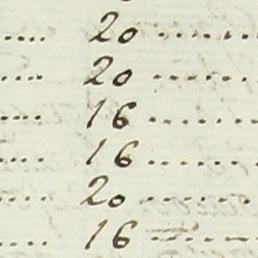 ..... 20 ........
..... 20 ........
..... 16 ........
..... 16 ........
..... 20 ........
..... 16 ........